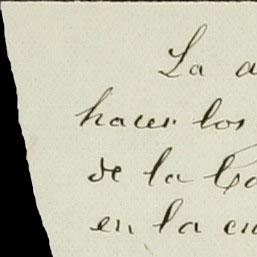 La a
hacer los
de la Ca
en la cu